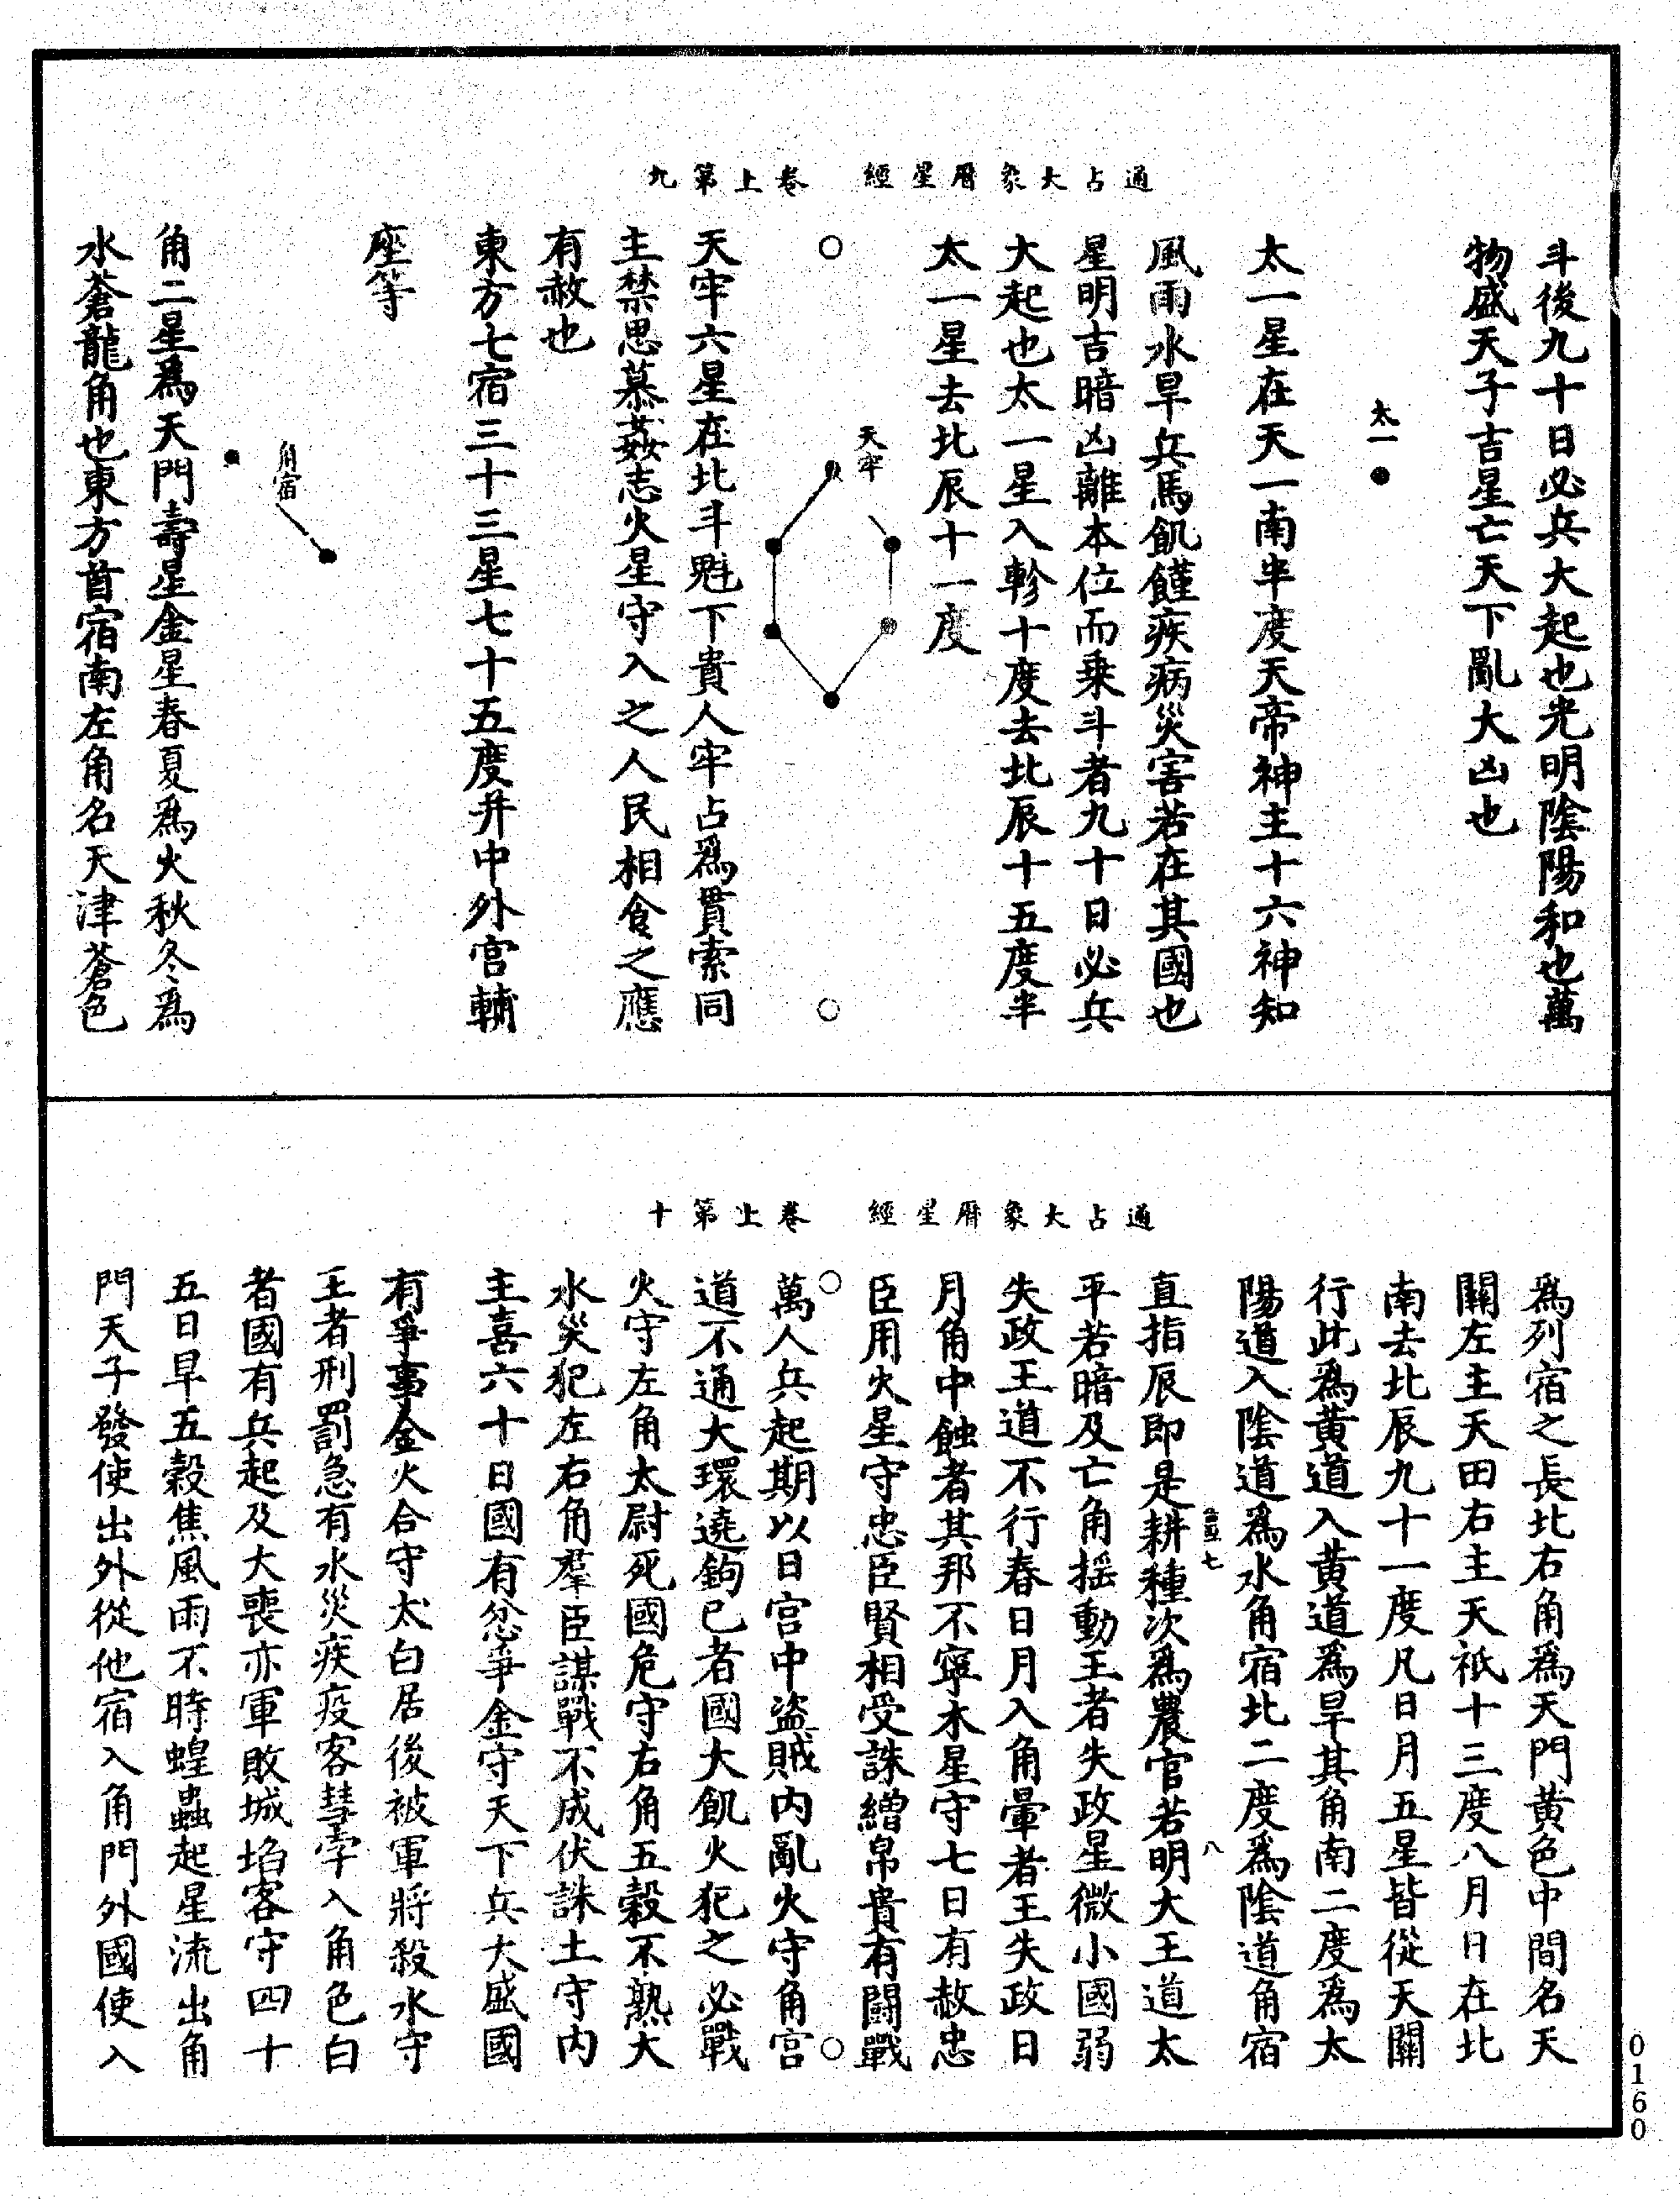 通占大象曆星經　卷上第九
斗後九十日必兵大起也光明陰陽和也萬
物盛天子吉星亡天下亂大凶也
太一
太一星在天一南半度天帝神主十六神知
風雨水旱兵馬飢饉疾病災害若在其國也
星明吉暗凶離本位而乗斗者九十日必兵
大起也太一星入軫十度去北辰十五度半
太一星去北辰十一度
天牢
天牢六星在北斗魁下貴人牢占爲貫索同
主禁思慕姦志火星守入之人民相食之應
有赦也
東方七宿三十三星七十五度并中外宮輔
座等
角宿
角二星爲天門壽星金星春夏爲火秋冬爲
水蒼龍角也東方首宿南左角名天津蒼色
通占大象曆星經　卷上第十
爲列宿之長北右角爲天門黄色中間名天
關左主天田右主天祇十三度八月日在北
南去北辰九十一度凡日月五星皆從天關
行此爲黄道入黄道爲旱其角南二度爲太
陽道入陰道爲水角宿北二度爲陰道角宿
七
八
直指辰即是耕種次爲農官若明大王道太
平若暗及亡角揺動王者失政星微小國弱
失政王道不行春日月入角暈者王失政日
月角中蝕者其邦不寧木星守七日有赦忠
臣用火星守忠臣賢相受誅繒帛貴有鬪戰
萬人兵起期以日宮中盗賊内亂火守角宮
道不通大環遶鉤已者國大飢火犯之必戰
火守左角太尉死國危守右角五穀不熟大
水災犯左右角羣臣謀戰不成伏誅土守内
主喜六十日國有忿爭金守天下兵大盛國
有爭事金火合守太白居後被軍將殺水守
王者刑罰急有水災疾疫客彗孛入角色白
者國有兵起及大喪亦軍敗城埳客守四十
五日旱五穀焦風雨不時蝗蟲起星流出角
門天子發使出外從他宿入角門外國使入
0160